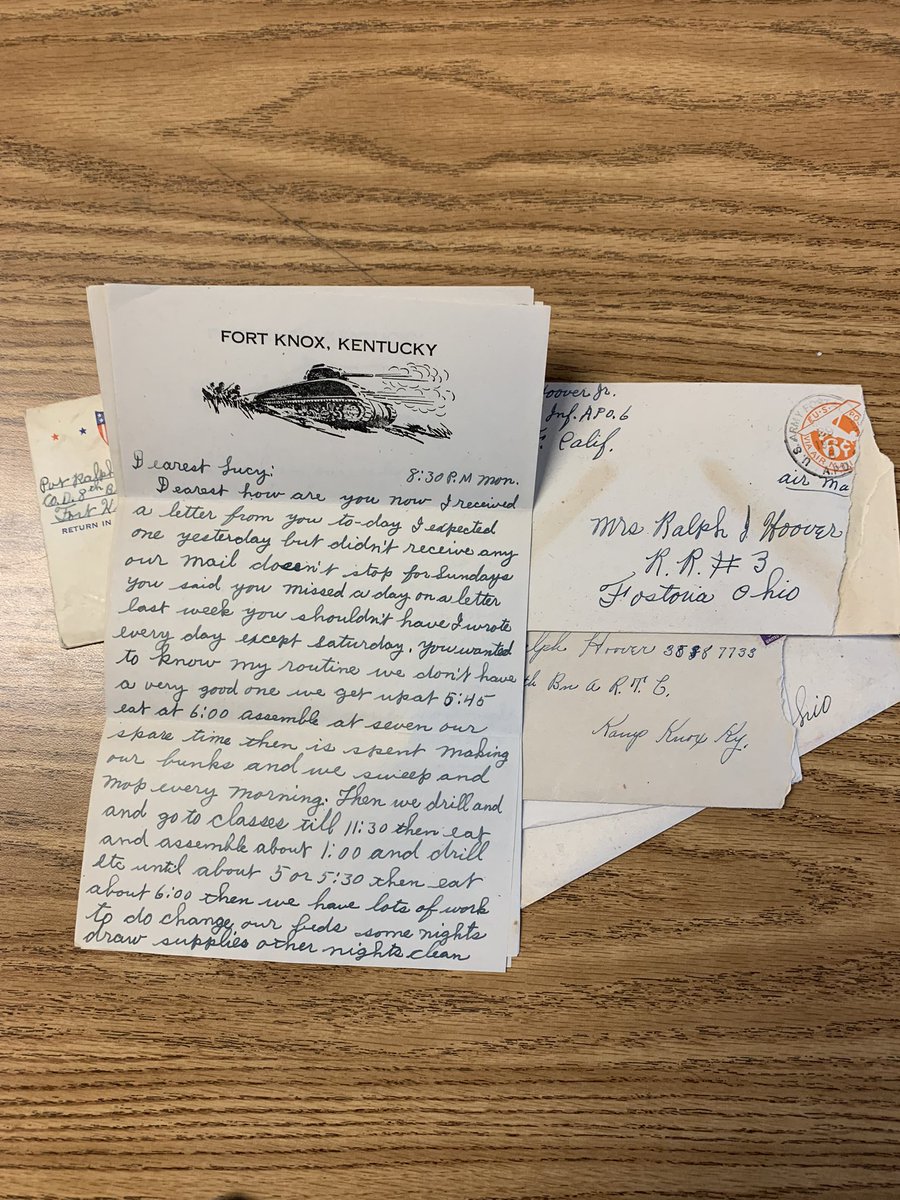 FORT KNOX, KENTUCKY
Dearest Lucy: 8:30 P.M Mon.
Dearest how are you now I received
a letter from you to-day I expected
one yesterday but didn't receive any
our mail doesn't stop for Sundays
you said you missed a day on a letter
last week you shouldn't have I wrote
every day except Saturday. You wanted
to know my routine we don't have
a very good one we get up at 5:45
eat at 6:00 assemble at seven our
spare time then is spent making
our bunks and we sweep and
mop every morning. Then we drill and
and go to classes till 11:30 then eat
and assemble about 1:00 and drill
etc until about 5 or 5:30 then eat
about 6:00 then we have lots of work
to do change our beds some nights
draw supplies other nights clean
Pvt Ralph
Co. D. 8th
Fort
RETURN IN
oover Jr.
Inf. APO. 6
Calif.
U.S. ARMY
VIA AIR MAIL
air Ma
Mrs Ralph J Hoover
R. R. # 3
Fostoria Ohio
alph Hoover 7733
th Bn A R. T. C.
Knox Ky.
hio